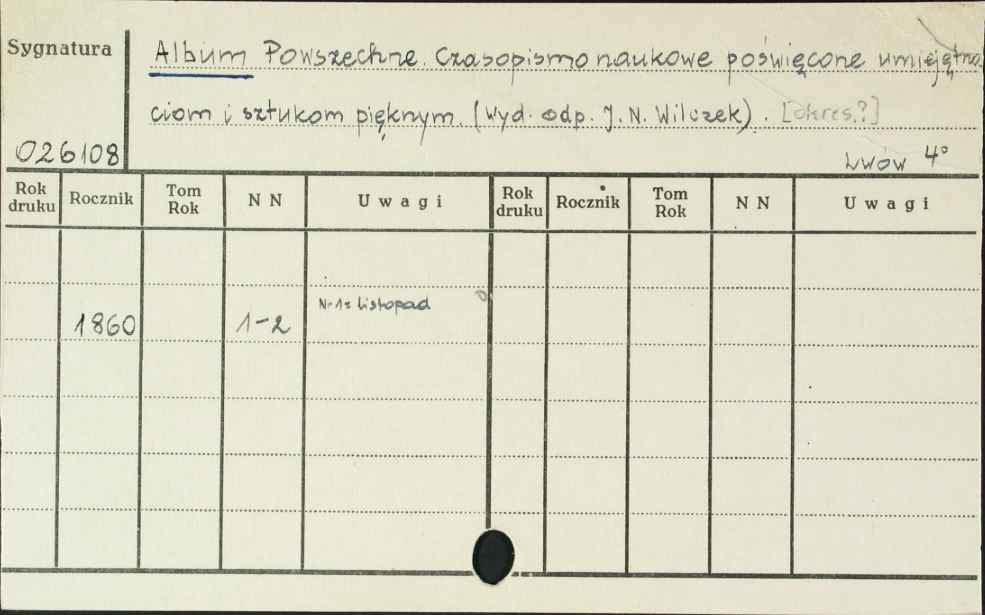 Sygnatura
Album Powszechne. Czasopismo naukowe poświęcone umiejętno
ciom i sztukom pięknym. (Wyd. odp. J. N. Wilczek). [okres.?]
026108
Lwów 4°
Rok druku Rocznik Tom Rok N N Uwagi Rok druku Rocznik Tom Rok N N Uwagi
1860 1-2 N-1= Listopad